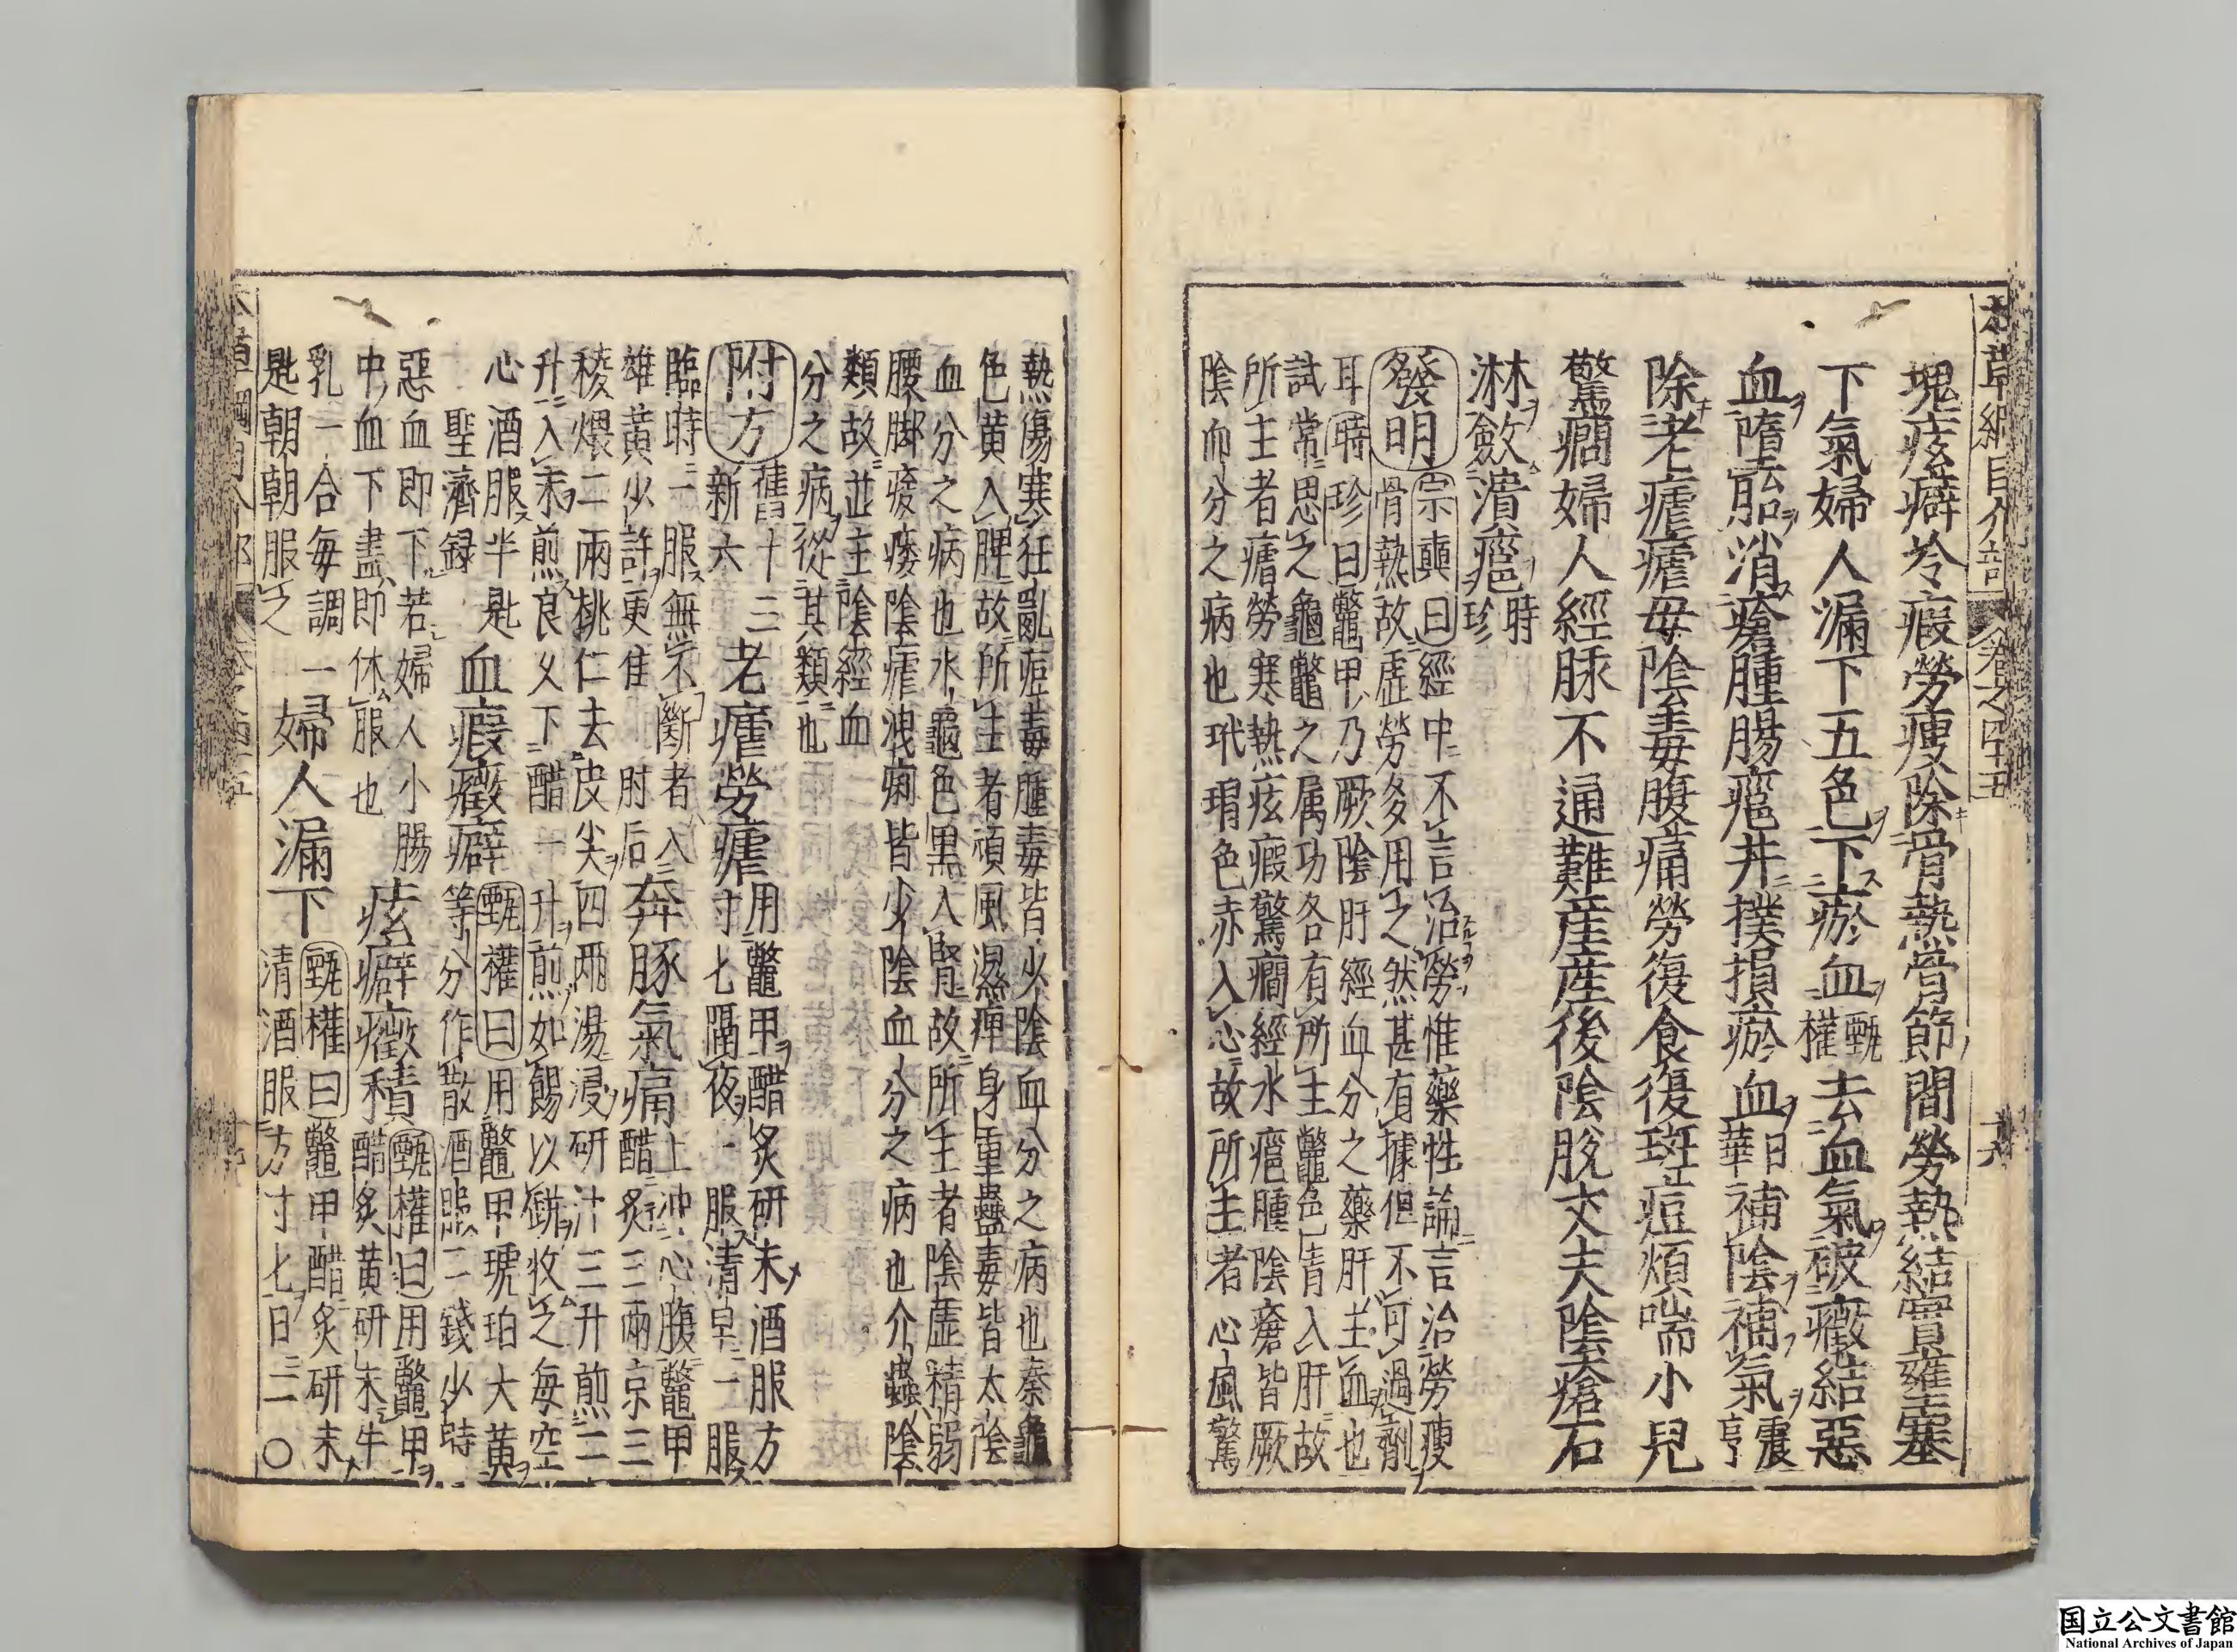 本草綱目介部 卷之四十五 十六
塊痃癖冷瘕勞瘦除骨熱骨節間勞熱結實壅塞
下氣婦人漏下五色下瘀血甄權去血氣破癥結惡
血墮胎消瘡腫腸癰幷撲損瘀血日華補陰補氣震亨
除老瘧瘧母陰毒腹痛勞復食復斑痘煩喘小兒
驚癇婦人經脉不通難產產後陰脫丈夫陰瘡石
淋斂潰癰時珍
發明宗奭曰經中不言治勞惟藥性論言治勞瘦
骨熱故虛勞多用之然甚有據但不可過劑
耳時珍曰鼈甲乃厥陰肝經血分之藥肝主血也
試常思之龜鼈之属功各有所主鼈色青入肝故
所主者瘧勞寒熱痃瘕驚癇經水癰腫陰瘡皆厥
陰血分之病也玳瑁色赤入心故所主者心風驚
熱傷寒狂亂痘毒腫毒皆少陰血分之病也秦龜
色黄入脾故所主者頑風濕痺身重蠱毒皆太陰
血分之病也水龜色黒入腎故所主者陰虛精弱
腰脚痠痿陰瘧洩痢皆少陰血分之病也介蟲陰
類故並主陰經血
分之病從其類也
附方舊十三新六老瘧勞瘧用鼈甲醋炙研末酒服方
寸匕隔夜一服清早一服
臨時一服無不斷者入
雄黄少許更佳肘后奔豚氣痛上冲心腹鼈甲
醋炙三兩京三
稜煨二兩桃仁去皮尖四兩湯浸研汁三升煎二
升入末煎良久下醋一升煎如餳以甁收之每空
心酒服半匙
聖濟録血瘕癥癖甄權曰用鼈甲琥珀大黄
等分作散酒服二錢少時
惡血即下若婦人小腸
中血下盡即休服也痃癖癥積甄權曰用鼈甲
醋炙黄研末牛
乳一合毎調一
匙朝朝服之婦人漏下甄權曰鼈甲醋炙研末
清酒服方寸匕日二〇
本草綱目介部 卷之四十五
国立公文書館
National Archives of Japan